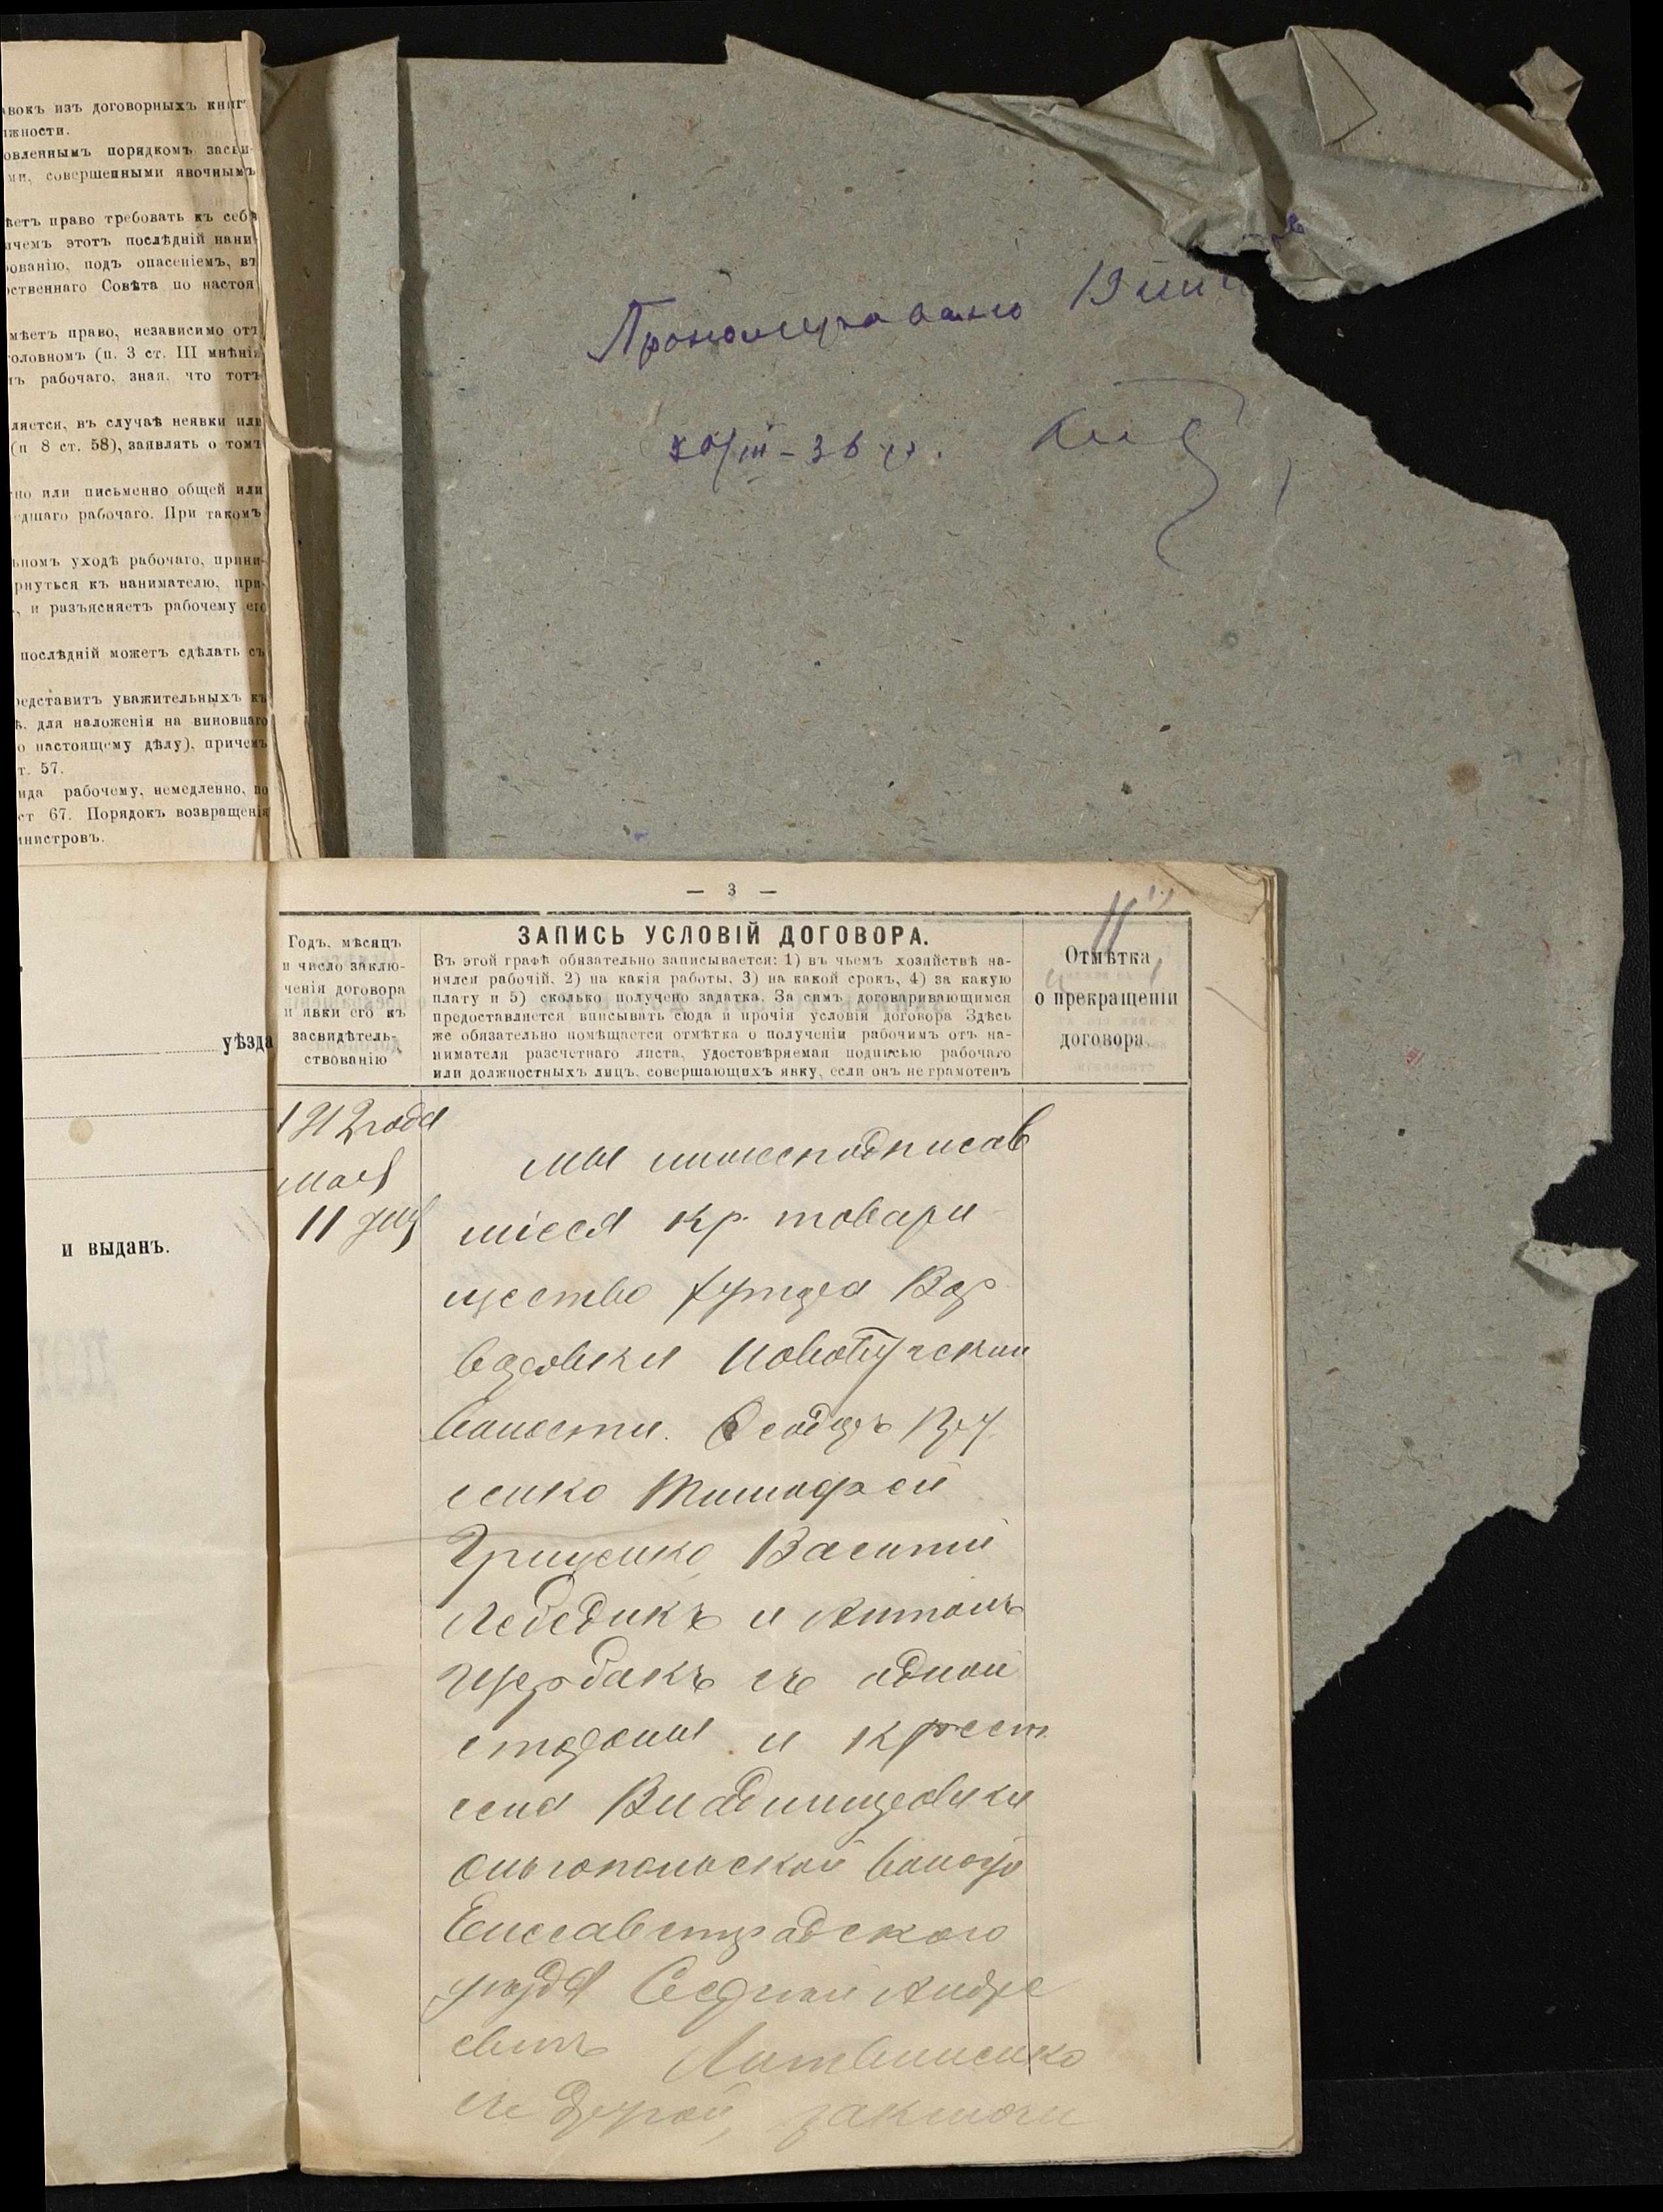 авокъ изъ договорныхъ книг
лжности.
овленнымъ порядкомъ засви-
ми, совершенными явочнымъ
ѣетъ право требовать къ себѣ
ичемъ этотъ послѣдній нани-
рованію, подъ опасеніемъ, въ
рственнаго Совѣта по настоя
мѣетъ право, независимо отъ
головномъ (п. 3 ст. III мнѣнія
тъ рабочаго, зная, что тотъ
ляется, въ случаѣ неявки или
(п 8 ст. 58), заявлять о томъ
но или письменно общей или
едшаго рабочаго. При такомъ
ьномъ уходѣ рабочаго, прини-
рнуться къ нанимателю, при-
, и разъясняетъ рабочему его
послѣдній можетъ сдѣлать съ
редставитъ уважительныхъ къ
ѣ. для наложенія на виновнаго
о настоящему дѣлу), причемъ
т. 57.
ида рабочему, немедленно, по
ст 67. Порядокъ возвращенія
инистровъ.
уѣзда
и выданъ.
Прономеровано 19
— 3 —
Годъ, мѣсяцъ
и число заклю-
ченія договора
и явки его къ
засвидѣтель-
ствованію
ЗАПИСЬ УСЛОВІЙ ДОГОВОРА.
Въ этой графѣ обязательно записывается: 1) въ чьемъ хозяйствѣ на-
нялся рабочій, 2) на какія работы, 3) на какой срокъ, 4) за какую
плату и 5) сколько получено задатка. За симъ договаривающимся
предоставляется вписывать сюда и прочія условія договора Здѣсь
же обязательно помѣщается отмѣтка о полученіи рабочимъ отъ на-
нимателя разсчетнаго листа, удостовѣряемая подписью рабочаго
или должностныхъ лицъ, совершающихъ явку, если онъ не грамотенъ
Отмѣтка
о прекращеніи
договора
1912 года
мая
11 дня
Мы нижеподписав
шіеся кр. товари
щество хутора Вар
варовки Новобугской
волости.
Тимофей
Грищенко Василий
Лебедикъ и Антонъ
Щербакъ съ одной
стороны и крест.
села Владимировки
Ольгопольской волости
Елисаветградского
уѣзда Андре
евичъ Литвиненко
съ другой, заключи